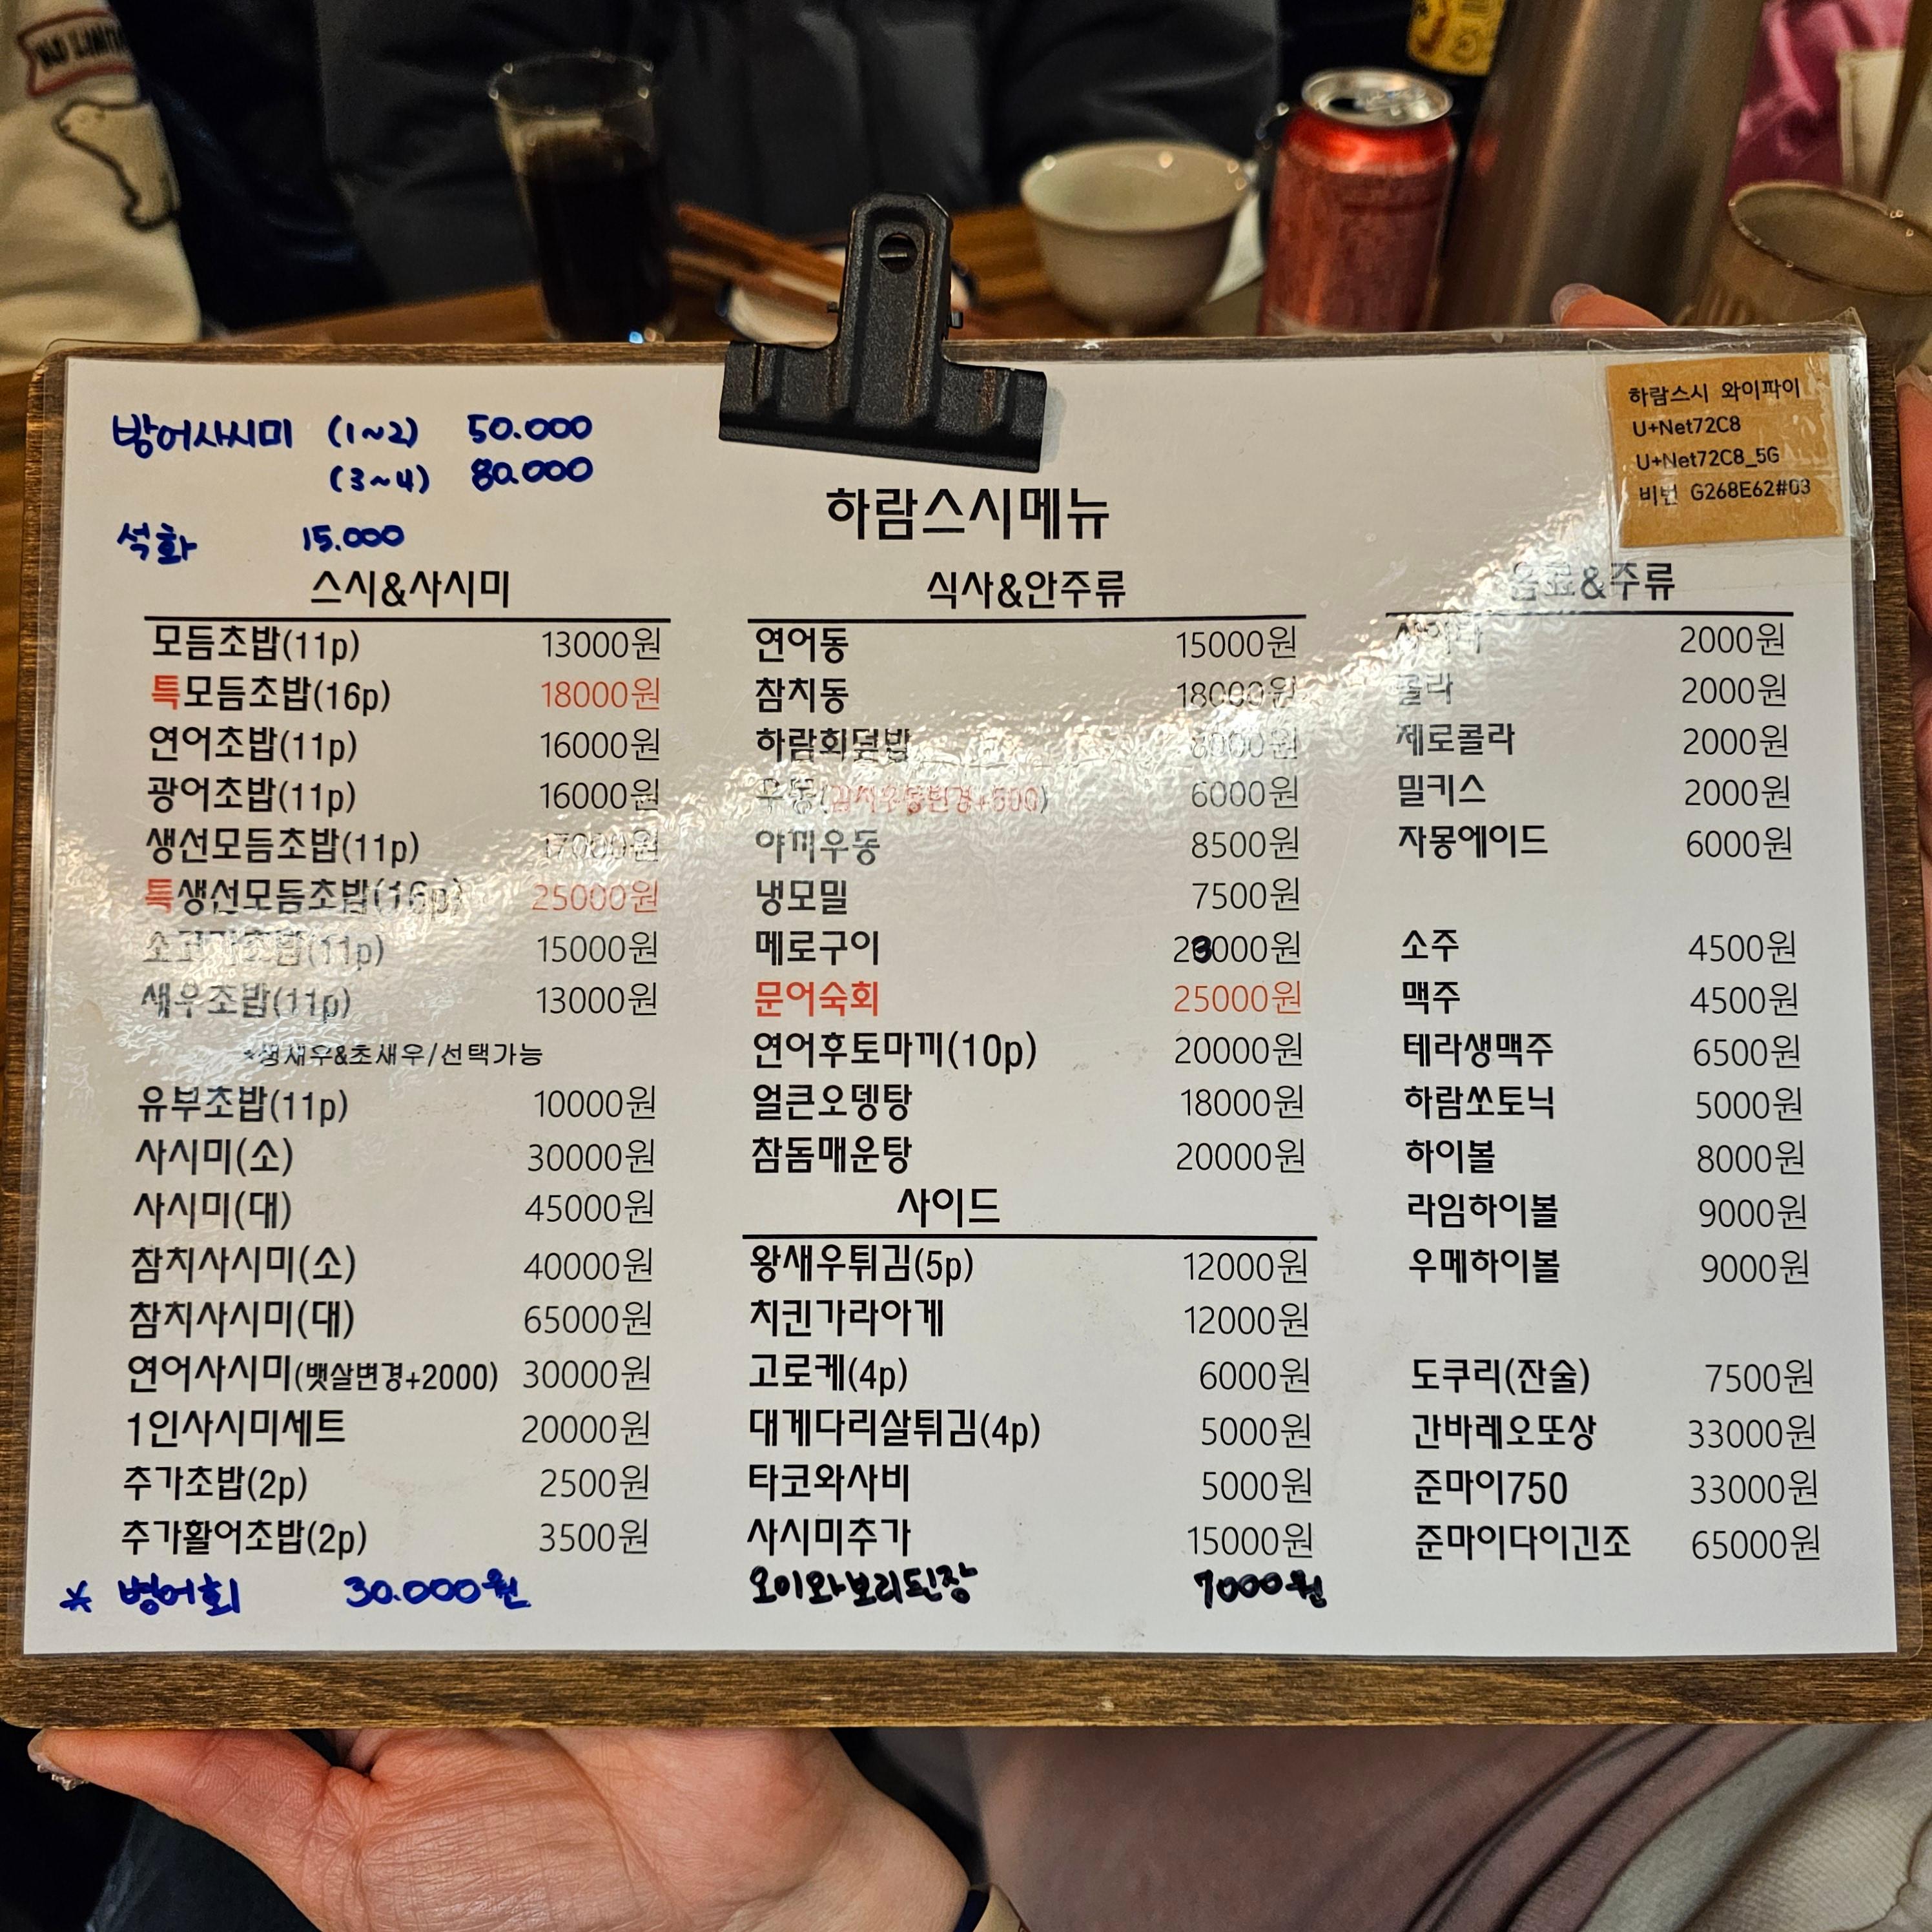 방어사시미 (1~2) 50.000
(3~4) 80.000
석화 15.000
하람스시 와이파이
U+Net72C8
U+Net72C8_5G
비번 G268E62#03
하람스시메뉴
스시&사시미
모듬초밥(11p) 13000원
특모듬초밥(16p) 18000원
연어초밥(11p) 16000원
광어초밥(11p) 16000원
생선모듬초밥(11p) 17000원
특생선모듬초밥(16p) 25000원
소고기초밥(11p) 15000원
새우초밥(11p) 13000원
*생새우&초새우/선택가능
유부초밥(11p) 10000원
사시미(소) 30000원
사시미(대) 45000원
참치사시미(소) 40000원
참치사시미(대) 65000원
연어사시미(뱃살변경+2000) 30000원
1인사시미세트 20000원
추가초밥(2p) 2500원
추가활어초밥(2p) 3500원
* 병어회 30.000원
식사&안주류
연어동 15000원
참치동 18000원
하람회덮밥
우동( 6000원
야끼우동 8500원
냉모밀 7500원
메로구이 23000원
문어숙회 25000원
연어후토마끼(10p) 20000원
얼큰오뎅탕 18000원
참돔매운탕 20000원
사이드
왕새우튀김(5p) 12000원
치킨가라아게 12000원
고로케(4p) 6000원
대게다리살튀김(4p) 5000원
타코와사비 5000원
사시미추가 15000원
오이와보리된장 7000원
음료&주류
사이다 2000원
콜라 2000원
제로콜라 2000원
밀키스 2000원
자몽에이드 6000원
소주 4500원
맥주 4500원
테라생맥주 6500원
하람쏘토닉 5000원
하이볼 8000원
라임하이볼 9000원
우메하이볼 9000원
도쿠리(잔술) 7500원
간바레오또상 33000원
준마이750 33000원
준마이다이긴조 65000원